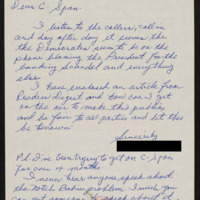 Dear C-Span.
I listen to the callers, call in
and day after day it seems like
the Democrats seem to be on the
phone blaming the President for the
banking Scandel and everything
else
I have enclosed an article from
Readers Digest and
on the air to make this public
and be fair to all parties and let this
be known
Sincerely
P.S. I've been trying to get on C-Span
for over 4 months
I never hear anyone speak about
the Notch Babies problem I wish you
can get someone to speak about it